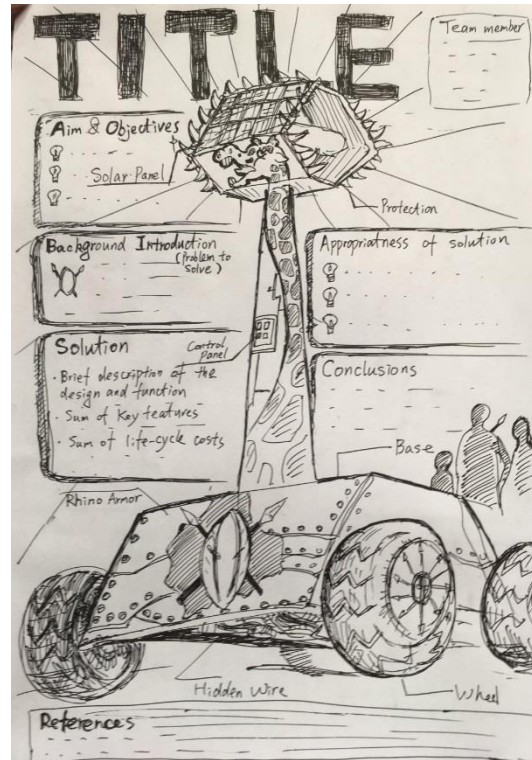 TITLE
Team member
Aim & Objectives
Solar Panel
Protection
Background Introduction
(Problem to
solve)
Appropriatness of solution
Control
Panel
Solution
· Brief description of the
design and function
· Sum of key features
· Sum of life-cycle costs
Conclusions
Base
Rhino Armor
Hidden Wire
Wheel
References